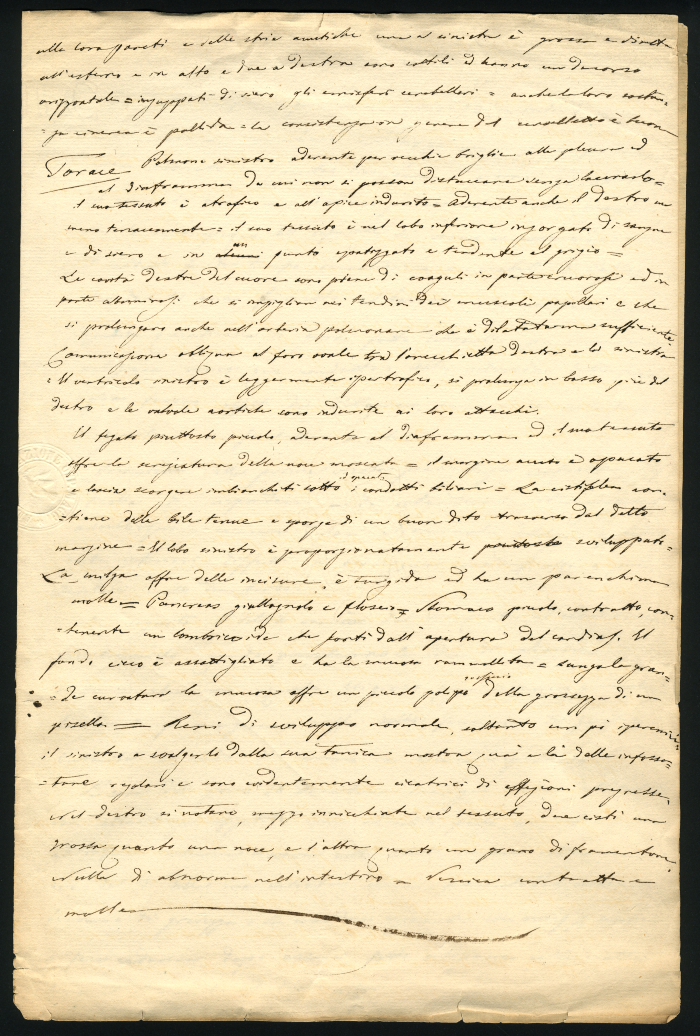 alle loro pareti e delle strie acustiche una a sinistra è grossa e diretta
all'esterno e in alto e due a destra sono sottili ed hanno un decorso
orizzontale = inzuppati di siero gli emisferi cerebellari = anche la loro sostan
=za cinerea è pallida = la consistenza in genere del cervelletto è buona
Torace Polmone sinistro aderente per vecchie briglie alla pleura ed
al diaframma da cui non si posson distaccare senza lacerarlo=
il suo tessuto è atrofico e all'apice indurito = aderente anche il destro ma
meno tenacemente = il suo tessuto è nel lobo inferiore ingorgato di sangue
e di siero e in un punto epatizzato e tendente al grigio =
Le cavità destre del cuore sono piene di coaguli in parte cruorosi ed in
parte albuminosi che si impigliano nei tendini dei muscoli papillari e che
si prolungano anche nell'arteria polmonare che è dilatata = una sufficiente
Comunicazione obliqua al foro ovale tra l'orecchietta destra e la sinistra
= Il ventricolo sinistro è leggermente ipertrofico, si prolunga in basso più del
destro e le valvole aortiche sono indurite ai loro attacchi.
Il fegato piuttosto piccolo, aderente al diaframma ed il suo tessuto
offre la screziatura della noce moscata = il margine acuto è opacato
e lascia scorgere imbiancati sotto i condotti biliari = La cistifelea con
=tiene della bile tenue e sporge di un buon dito traverso dal detto
margine = Il lobo sinistro è proporzionatamente piuttosto sviluppato=
La milza offre delle incisure, è turgida ed ha un parenchima
molle = Pancreas giallagnolo e floscio = Stomaco piccolo, contratto, con=
=tenente un lombricoide che sortì dall'apertura del cardias. Il
fondo cieco è assottigliato e ha la mucosa rammollita = lungo la gran=
=de curvatura la mucosa offre un piccolo polipo della grossezza di un
pisello = Reni di sviluppo normale, soltanto un pò iperemico
il sinistro e svolgerlo dalla sua tunica mostra quà e là delle infossa=
=ture regolari e sono evidentemente cicatrici di affezioni pregresse.
Nel destro si notano, mezzo innicchiate nel tessuto, due cisti una
grossa quanto una noce, e l'altra quanto un grano diframentone.
Nulla di abnorme nell'intestino = Vescica contratta e
molle